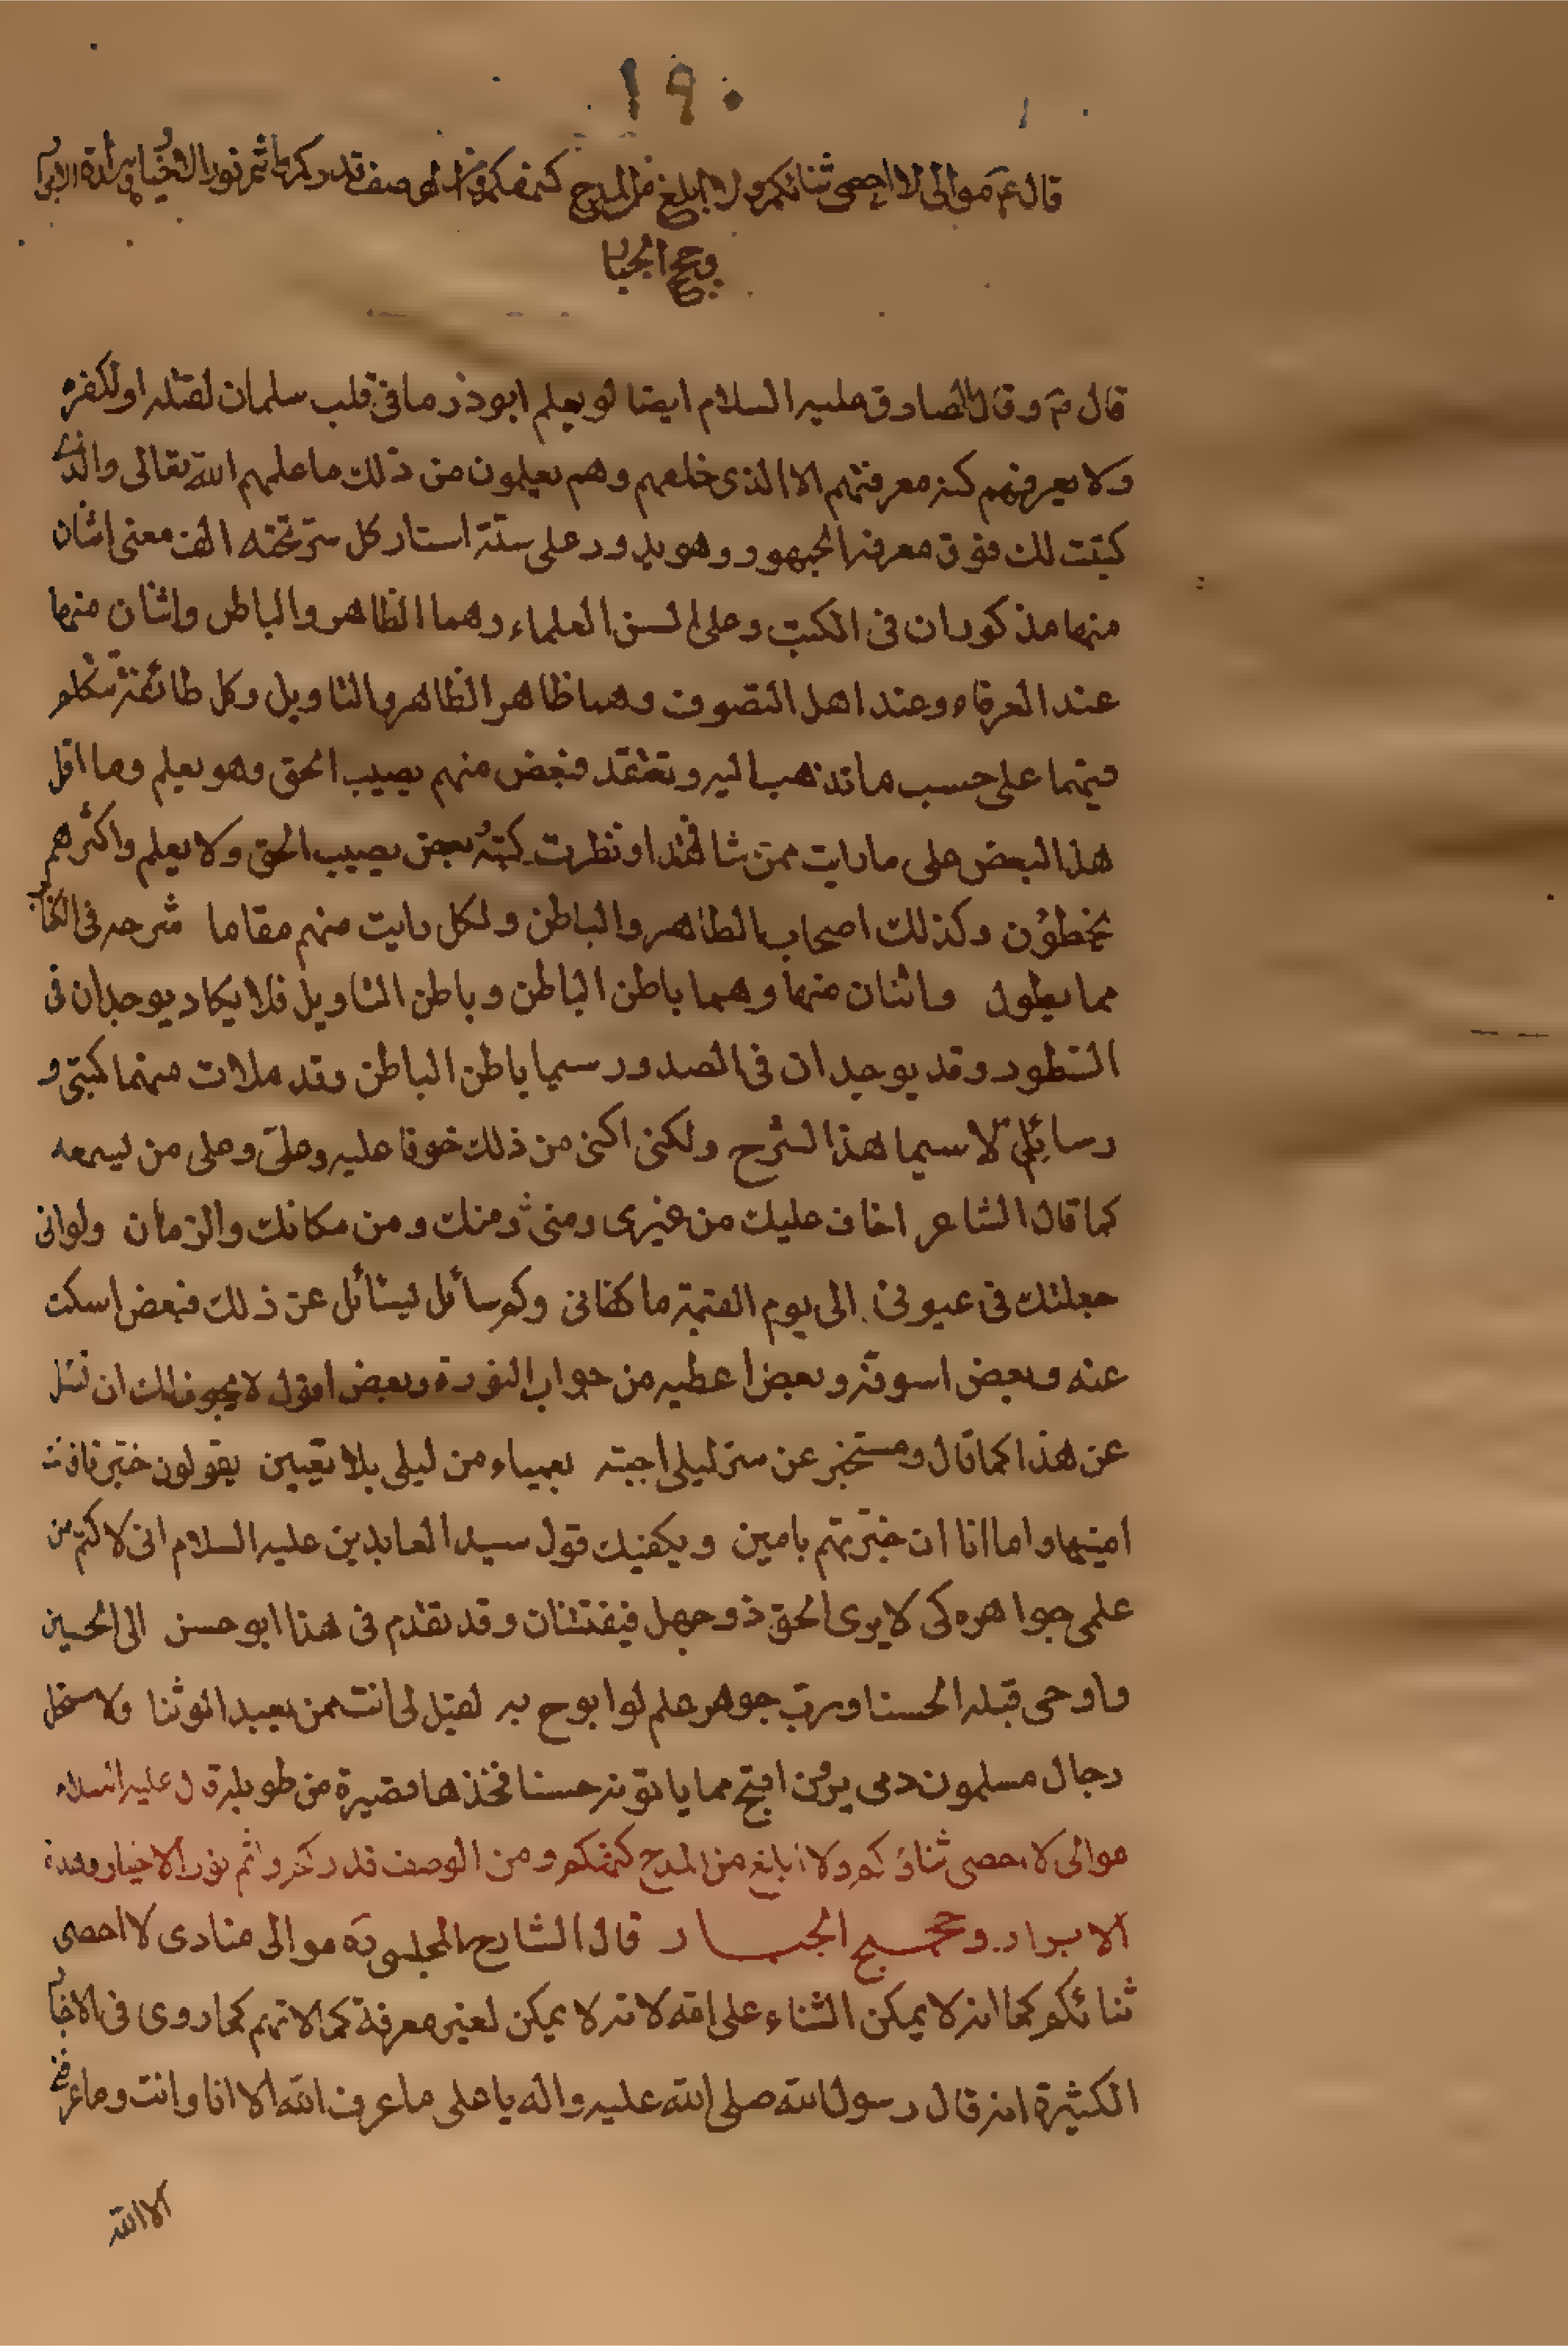 ١٩٠
قال ع موالى لا احصى ثنائكم ولا ابلغ من المدح كنهكم ومن الوصف قدركم وانتم نور الاخيار وهداة الابرار
وحجج الجبار
قال ع وقال الصادق عليه السلام ايضا لو يعلم ابوذر ما فى قلب سلمان لقتله او لكفره
ولا يعرفهم كنه معرفتهم الا الذى خلقهم وهم يعلمون من ذلك ما علمهم الله تعالى والذى
كتبت لك فوق معرفة الجمهور وهو يدور على ستة استار كل ستر تحته الف معنى اثنان
منها مذكوران فى الكتب وعلى السن العلماء وهما الظاهر والباطن واثنان منها
عند العرفاء وعند اهل التصوف وهما ظاهر الظاهر والتاويل وكل طائفة تتكلم
فيهما على حسب ما تذهب اليه وتعتقد فبعض منهم يصيب الحق وهو يعلم وما اقل
هذا البعض على ما رايت ممن شافهته او نظرت كتبه وبعض يصيب الحق ولا يعلم واكثرهم
يخطؤن وكذلك اصحاب الظاهر والباطن ولكل رايت منهم مقاما شرحه فى الكتاب
مما يطول واثنان منها وهما باطن الباطن وباطن التاويل فلا يكاد يوجدان فى
السطور وقد يوجدان فى الصدور سيما باطن الباطن وقد ملات منهما كتبى و
رسائلى لا سيما هذا الشرح ولكنى اكنى من ذلك خوفا عليه وعلى وعلى من يسمعه
كما قال الشاعر اخاف عليك من غيرى ومنى ومنك ومن مكانك والزمان ولو انى
جعلتك فى عيونى الى يوم القيمة ما كفانى وكم سائل ليسائل عن ذلك فبعض اسكت
عنه وبعض اسوفه وبعض اعطيه من جواب النورة وبعض اقول لا يجوز لك ان تسئل
عن هذا كما قال ومستخبر عن سر ليلى اجبته بعمياء من ليلى بلا تعيين يقولون خبرنا فانت
امينها وما انا ان خبرتهم بامين ويكفيك قول سيد العابدين عليه السلام انى لاكتم من
علمى جواهره كى لا يرى الحق ذو جهل فيفتتنان وقد تقدم فى هذا ابو حسن الى الحسين
واوصى قبله الحسنا ورب جوهر علم لو ابوح به لقيل لى انت ممن يعبد الوثنا ولاستحل
رجال مسلمون دمى يرون اقبح مما ياتونه حسنا فخذها قصيرة من طويلة قال عليه السلام
موالى لا احصى ثناؤكم ولا ابلغ من المدح كنهكم ومن الوصف قدركم وانتم نور الاخيار وهداة
الابرار وحجج الجبار قال الشارح المجلسى ره موالى منادى لا احصى
ثنائكم كما انه لا يمكن الثناء على الله لانه لا يمكن لغير معرفة كمالاتهم كما روى فى الاخبار
الكثيرة انه قال رسول الله صلى الله عليه واله يا على ما عرف الله الا انا وانت وما عرفنى
الا الله